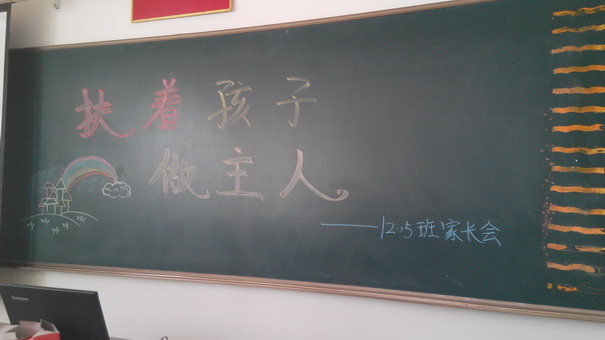 扶着孩子
做主人
——12.5班家长会